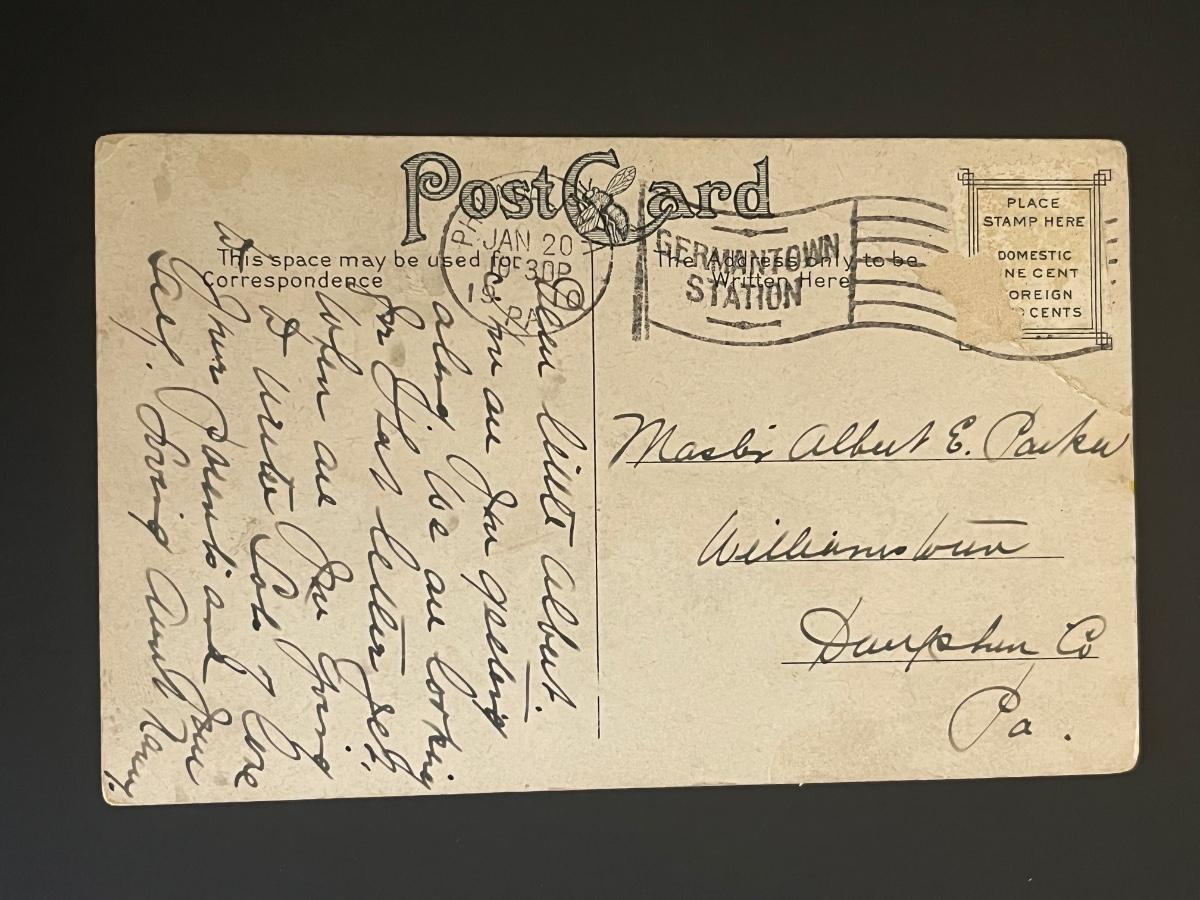 Post Card
This space may be used for
Correspondence
The Address only to be
Written Here
JAN 20
30P
PA
GERMANTOWN
STATION
PLACE
STAMP HERE
DOMESTIC
NE CENT
OREIGN
CENTS
Dear little Albert.
How are you getting
along. We are looking
for that letter yet,
When are you going
to write. Lots of love
to your Parents and
Loving Aunt
Master Albert E. Parker
Williamstown
Dauphin Co
Pa.